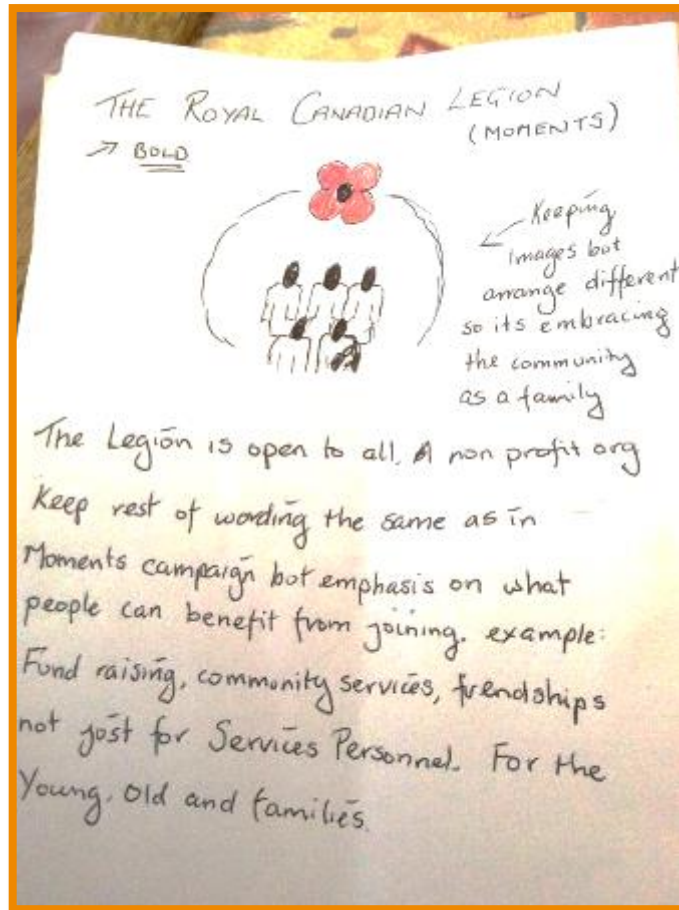 THE ROYAL CANADIAN LEGION
(MOMENTS)
BOLD
Keeping
images but
arrange different
so its embracing
the community
as a family
The Legion is open to all. A non profit org
Keep rest of wording the same as in
Moments campaign but emphasis on what
people can benefit from joining. example:
Fund raising, community services, frendships
not just for Services Personnel. For the
Young, Old and families.